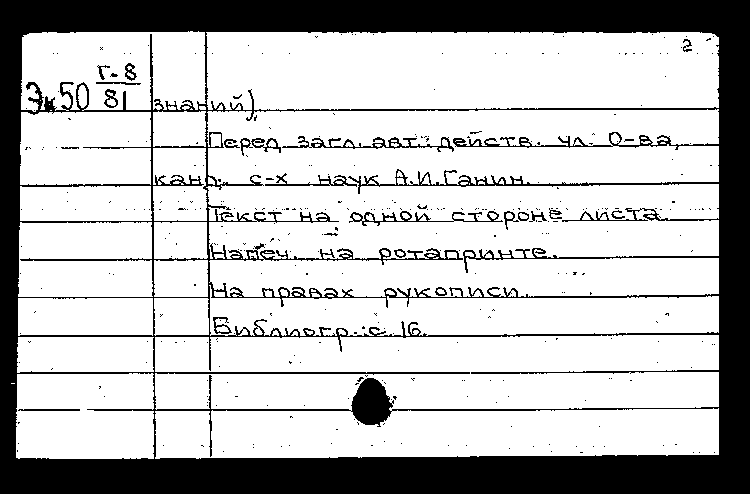 2
Эк50 Г-8/81 знаний).
Перед загл. авт.: действ. чл. О-ва,
канд. с-х наук А.И.Ганин.
Текст на одной стороне листа.
Напеч. на ротапринте.
На правах рукописи.
Библиогр.: с. 16.